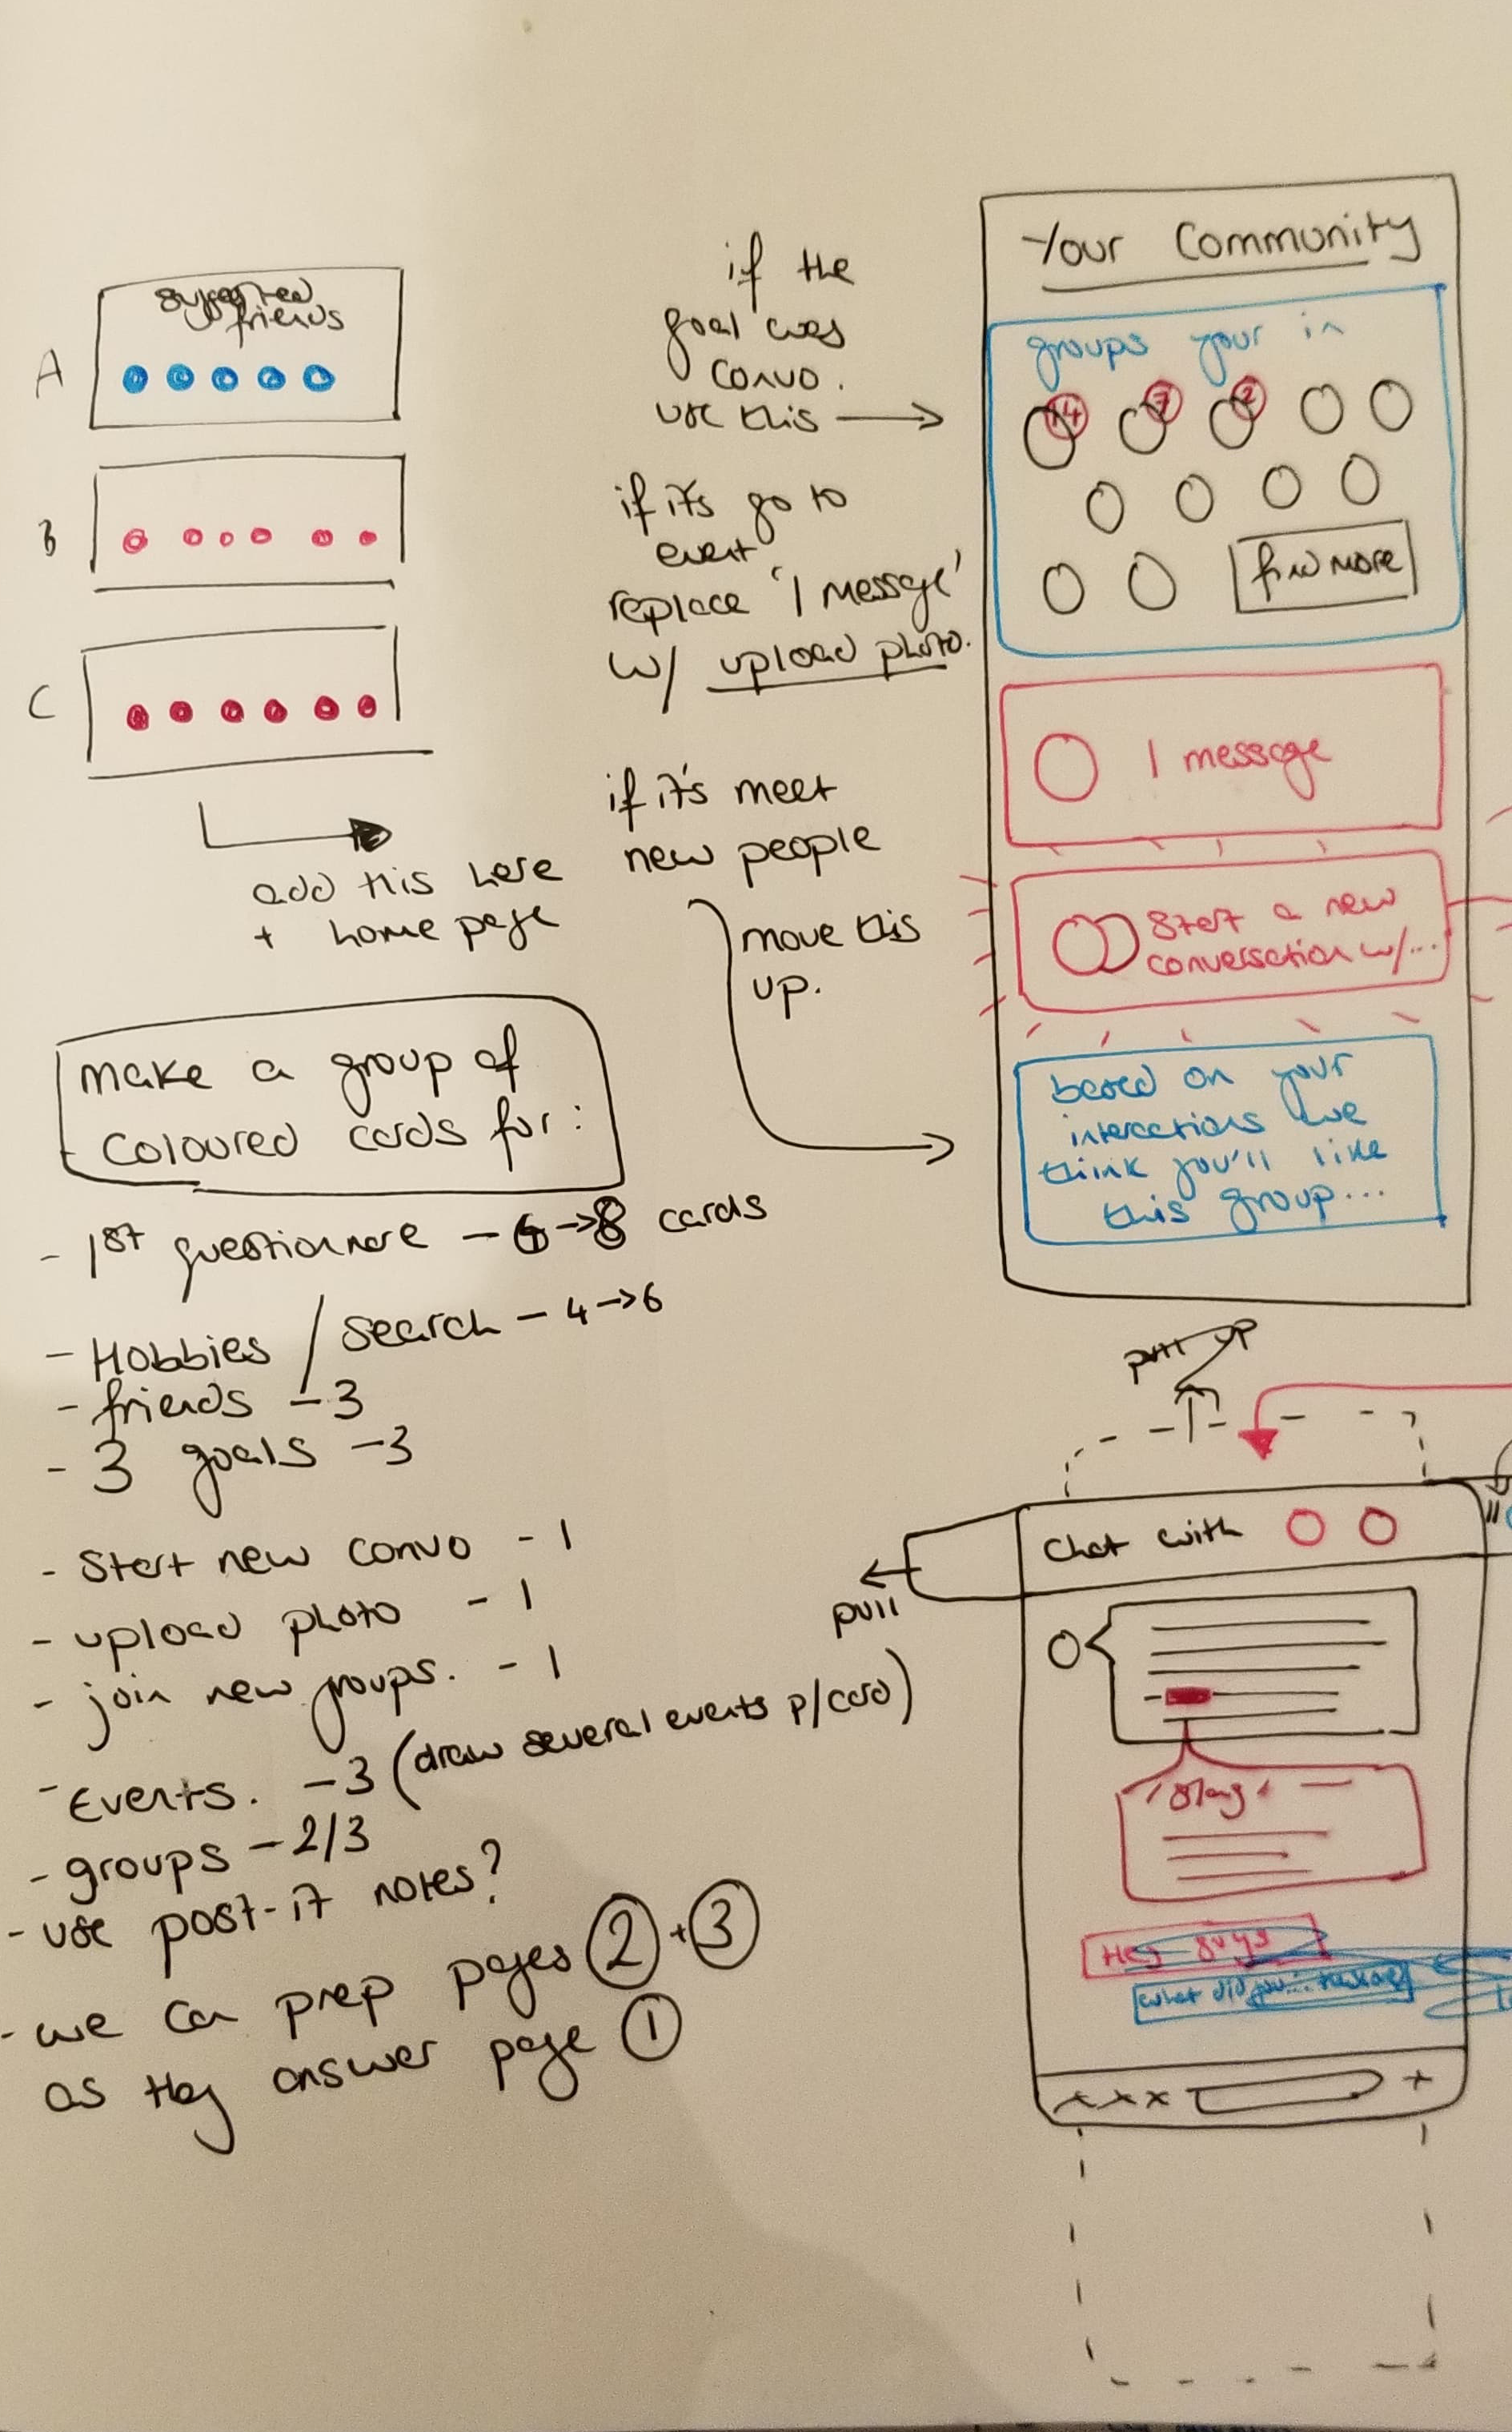 suggested
friends
A
B
C
add this here
+ home page
if the
goal was
convo.
use this
if it's go to
event
replace '1 message'
w/ upload photo.
if it's meet
new people
move this
up.
Your Community
groups your in
14 7 2
find more
1 message
Start a new
conversation w/...
based on your
interactions we
think you'll like
this group...
make a group of
coloured cards for:
- 1st questionnare - 6 → 8 cards
- Hobbies / Search - 4 → 6
- friends - 3
- 3 goals - 3
- Start new convo - 1
- upload photo - 1
- join new groups. - 1
- Events. - 3 (draw several events p/card)
- groups - 2/3
- use post-it notes?
- we can prep pages 2 + 3
as they answer page 1
pull up
pull
Chat with
'Slang' —
Hey guys
what did you...
x x x +